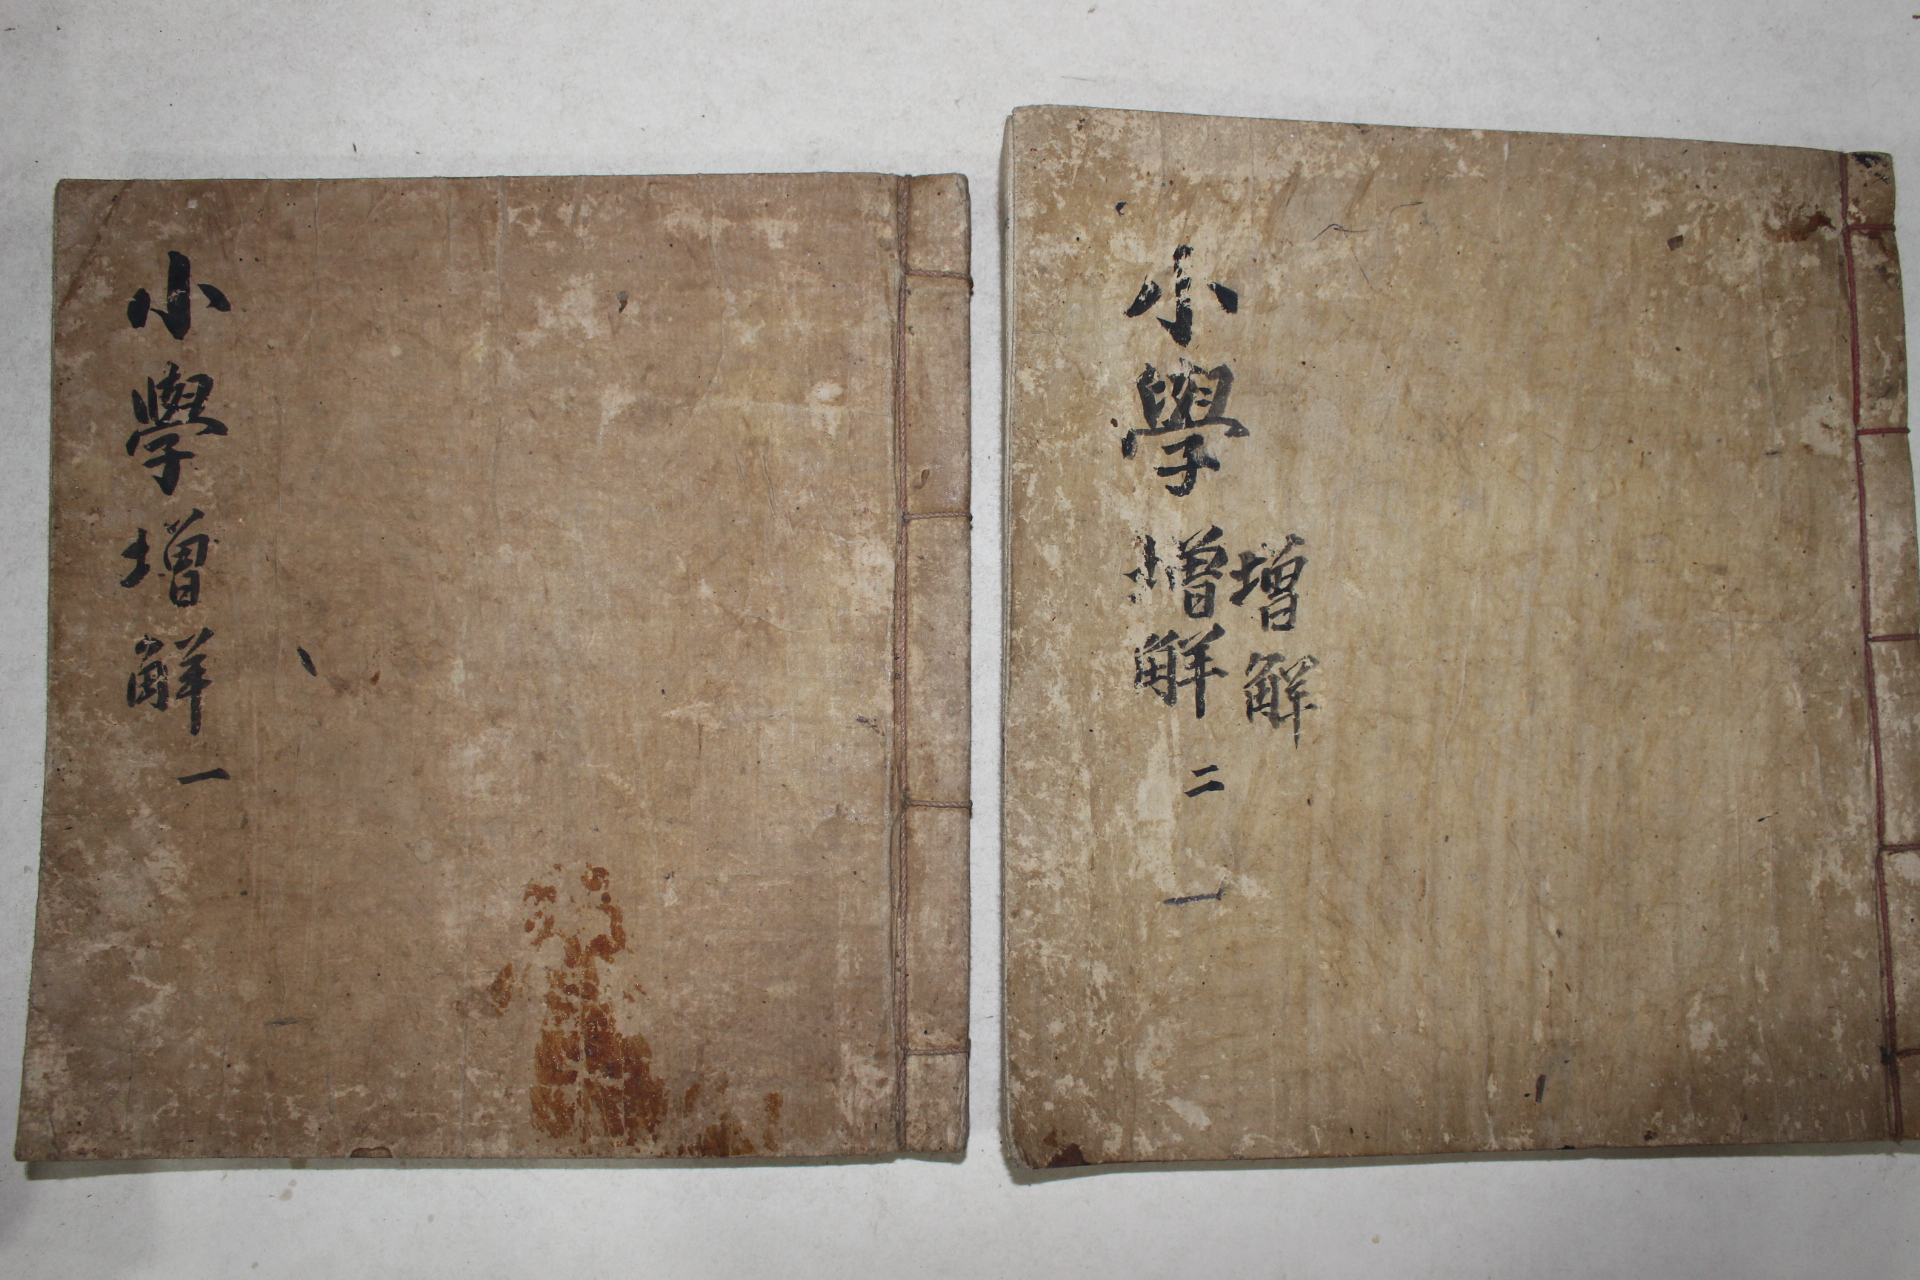 小學增解 一
小學增解 二 一
增解